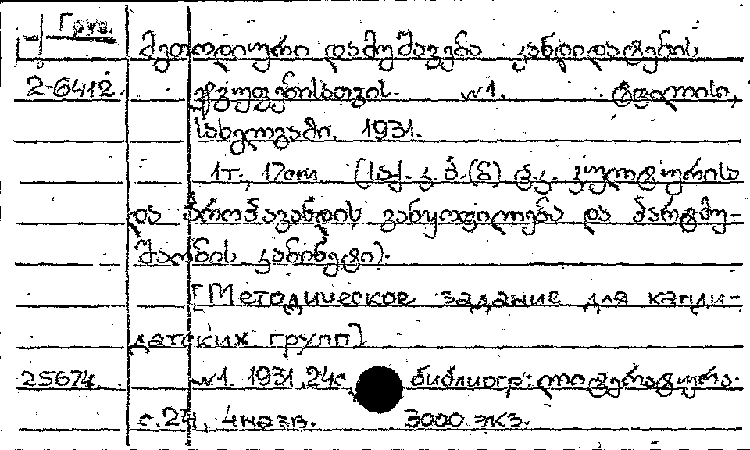 Груз.
მეთოდიური დამუშავება კანდიდატების
2-6412. ჯგუფებისათვის. №1. ტფილისი,
სახელგამი, 1931.
1т., 17см. (საქ. კ. პ. (ბ) ც. კ. კულტურისა
და პროპაგანდის განყოფილება და პარტმუ-
შაობის კაბინეტი).
[Методическое задание для канди-
датских групп]
25674. №1. 1931. 24с. библиогр: ლიტერატურა.
с. 24, 4 назв. 3000 экз.